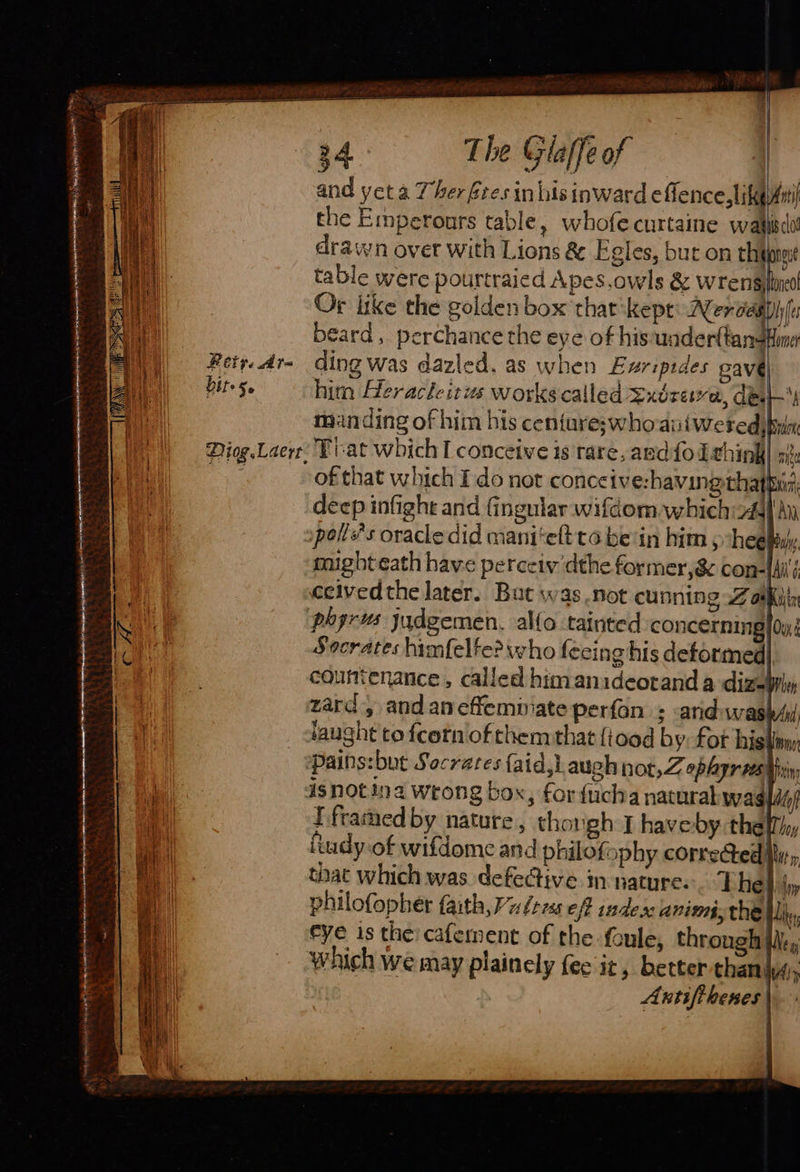 34 The Glaſſe of
and yet a Therſites in his inward eſſence, like
the Emperours table, whoſe curtaine was
drawn over with Lions & Egles, but on the
table were pourtraied Apes, owls & wrens,
Or like the golden box that kept Neroes
beard, perchance the eye of his underſtan-
Petr. Ar- ding was dazled, as when Euripides gave
bit. 5. him Heracleitus works called Σκότεινα, de-
manding of him his cenſure; who anſwered,
Diog. Laert. That which I conceive is rare, and ſo I think
of that which I do not conceive: having that
deep inſight and ſingular wiſdom which
pollo's oracle did manifeſt to be in him, hee
might eath have perceiv'd the former, & con-
ceived the later. But was not cunning Zo-
phyrus judgemen. alſo tainted concerning
Socrates himſelfe? who ſeeing his deformed
countenance, called him an ideot and a diz-
zard, and an effeminate perſon; and was
laught to ſcorn of them that ſtood by for his
pains: but Socrates ſaid, Laugh not, Zophyrus
is not in a wrong box, for ſuch a natural was
I framed by nature, though I have by the
ſtudy of wiſdome and philoſophy corrected
that which was defective in nature. The
philoſopher ſaith, Vultus eſt index animi, the
eye is the caſement of the ſoule, through
which we may plainely ſee it, better than
Antiſthenes